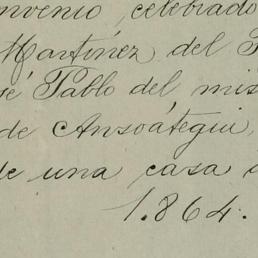 nvenio, celebrado
Martínez del
sé Pablo del mis
de Anzoátegui,
de una casa
1.864.